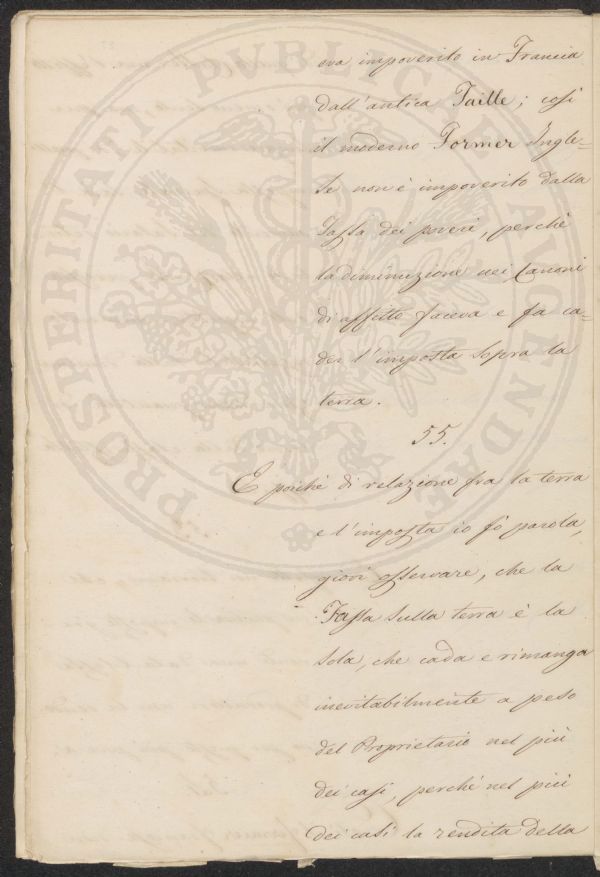 ova impoverito in Francia
dall'antica Taille; così
il moderno Formèr Ingle-
se non è impoverito dalla
Tassa dei poveri, perchè
la diminuzione nei Canoni
di affitto faceva e fa ca-
der l'imposta sopra la
terra.
55.
E poichè di relazione fra la terra
e l'imposta io fò parola,
giovi osservare, che la
Tassa sulla terra è la
sola, che cada e rimanga
inevitabilmente a peso
del Proprietario nel più
dei casi, perchè nel più
dei casi la rendita della
PROSPERITATI PVBLICAE AVGENDAE